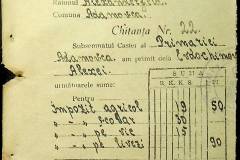 Raionul Alexandreștii
Comuna Adamovca.
Chitanța Nr. 22.
Subsemnatul Casier al Primăriei
Adamovca. am primit dela Evdochimov
Alexei.
următoarele sume:
SUMA
R.K.K.S
Pentru
impozit agricol 19 50.
" " școlar 30
" " pe vie 15
" " pe livezi 90